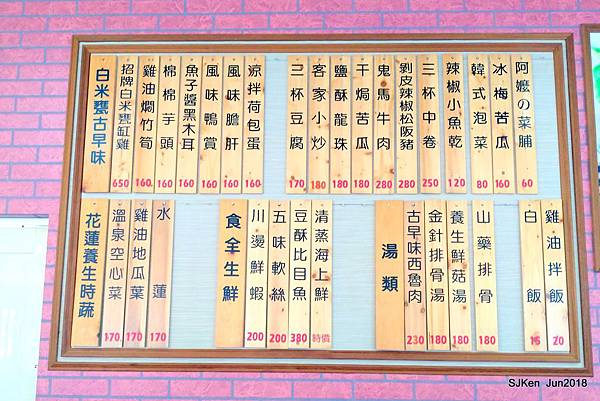 白米甕古早味
招牌白米甕缸雞 650
雞油燜竹筍 160
棉棉芋頭 160
魚子醬黑木耳 160
風味鴨賞 160
風味膽肝 160
涼拌荷包蛋 160
三杯豆腐 170
客家小炒 180
鹽酥龍珠 180
干焗苦瓜 180
鬼馬牛肉 280
剝皮辣椒松阪豬 280
三杯中卷 250
辣椒小魚乾 120
韓式泡菜 80
冰梅苦瓜 160
阿嬤の菜脯 60
花蓮養生時蔬
溫泉空心菜 170
雞油地瓜葉 170
水蓮 170
食全生鮮
川燙鮮蝦 200
五味軟絲 200
豆酥比目魚 380
清蒸海上鮮 時價
湯類
古早味西魯肉 230
金針排骨湯 180
養生鮮菇湯 180
山藥排骨 180
白飯 15
雞油拌飯 20
SJKen Jun2018